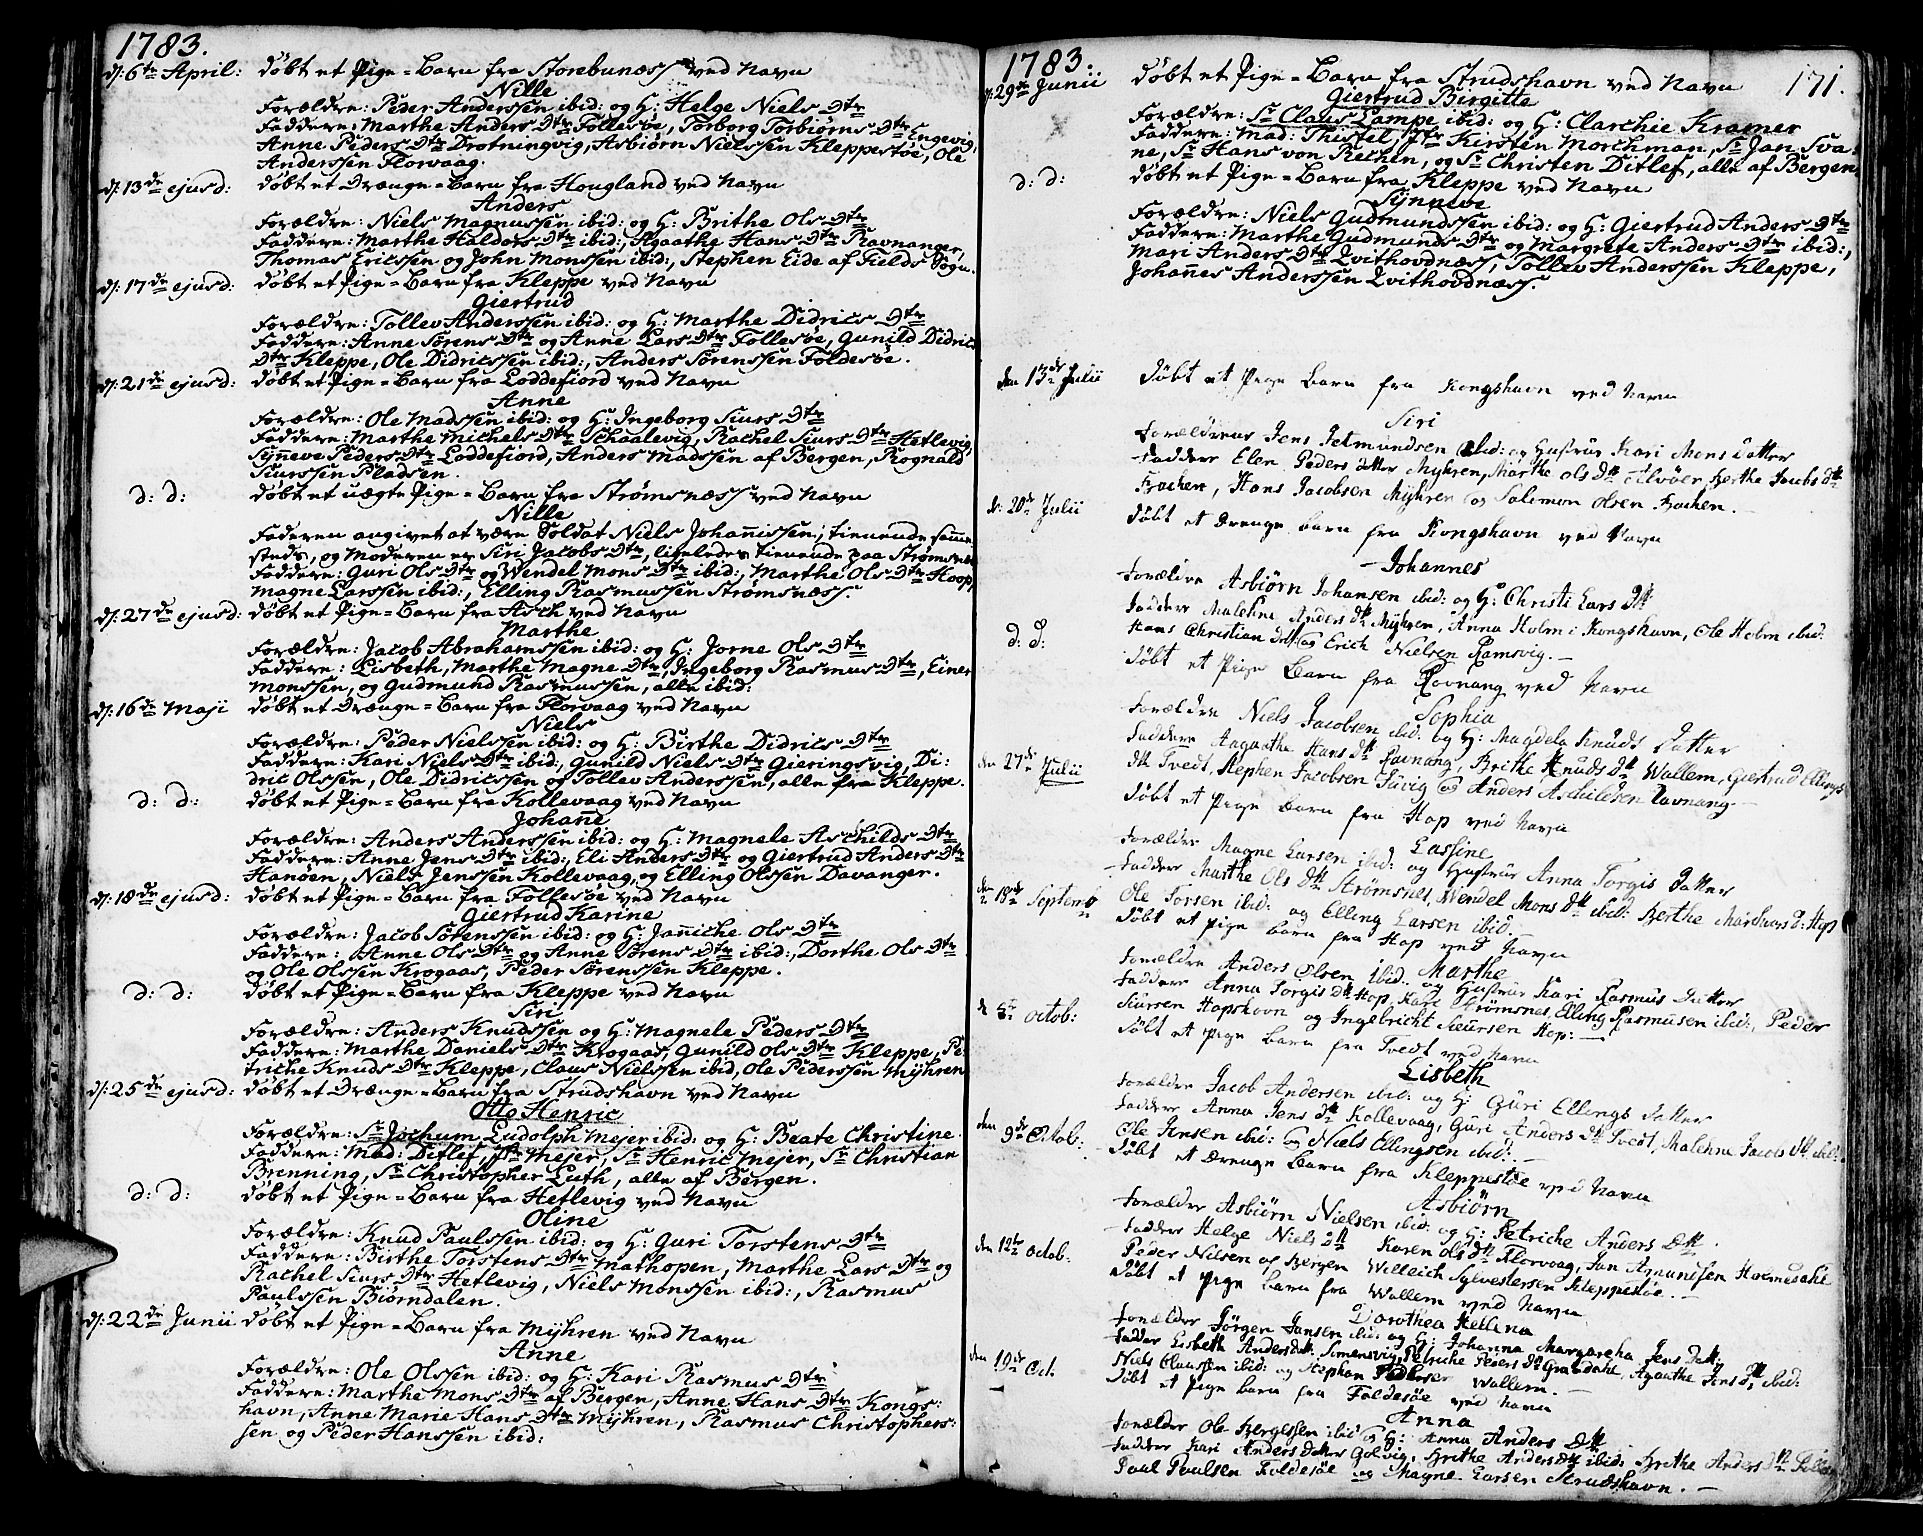 1783.
d: 6te April: døbt et Pige-Barn fra Storebunæss ved Navn
Nille
Forældre: Peder Anderssen ibid: og H: Helge Niels Dtr
Faddere: Marthe Anders Dtr Follesøe, Torborg Torbiørns Dtr Engevig,
Anne Peders Dtr Drotningvig, Asbiørn Nielssen Kleppestøe, Ole
Anderssen Florvaag.
d: 13de ejusd: døbt et Drænge-Barn fra Hougland ved Navn
Anders
Forældre: Niels Magnussen ibid: og H: Brithe Ols Dtr
Faddere: Marthe Haldors Dtr ibid:, Agaathe Hans Dtr Ravnanger,
Thomas Ericssen og John Monssen ibid:, Stephen Eide af Fields Sogn.
d: 17de ejusd: døbt et Pige-Barn fra Kleppe ved Navn
Giertrud
Forældre: Tollev Anderssen ibid: og H: Marthe Didrics Dtr
Faddere: Anne Sørens Dtr og Anne Lars Dtr Follesøe, Gunild Didrics
Dtr Kleppe, Ole Didricssen ibid:, Anders Sørenssen Foldesøe.
d: 21de ejusd: døbt et Pige-Barn fra Loddefiord ved Navn
Anne
Forældre: Ole Madssen ibid: og H: Ingeborg Siurs Dtr
Faddere: Marthe Michels Dtr Schaalevig, Rachel Siurs Dtr Hetlevig,
Synneve Peders Dtr Loddefiord, Anders Madssen af Bergen, Rognald
Siurssen Pladsen.
d: d: døbt et uægte Pige-Barn fra Strømsnæss ved Navn
Nille
Faderen angivet at være Soldat Niels Johannissen, tienende samme
steds, og Moderen er Siri Jacobs Dtr, ligeledes tienende paa Strømsnæs
Faddere: Guri Ols Dtr og Wendel Mons Dtr ibid:, Marthe Ols Dtr Hoop,
Magne Larssen ibid:, Elling Rasmussen Strømsnæss.
d: 27de ejusd: døbt et Pige-Barn fra Asch ved Navn
Marthe
Forældre: Jacob Abrahamssen ibid: og H: Jorne Ols Dtr
Faddere: Lisbeth, Marthe Magne Dtr, Ingeborg Rasmus Dtr, Einer
Monssen, og Gudmund Rasmussen, alle ibid:
d: 16de Maji døbt et Drænge-Barn fra Florvaag ved Navn
Niels
Forældre: Peder Nielssen ibid: og H: Birthe Didrics Dtr
Faddere: Kari Niels Dtr ibid:, Gunild Niels Dtr Gieringsvig, Di-
dric Olssen, Ole Didricssen og Tollev Anderssen, alle fra Kleppe.
d: d: døbt et Pige-Barn fra Kollevaag ved Navn
Johanne
Forældre: Anders Anderssen ibid: og H: Magnele Aschilds Dtr
Faddere: Anne Jens Dtr ibid:, Eli Anders Dtr og Giertrud Anders Dtr
Hanøen, Niels Jenssen Kollevaag, og Elling Olssen Davanger.
d: 18de ejusd: døbt et Pige-Barn fra Follesøe ved Navn
Giertrud Karine
Forældre: Jacob Sørenssen ibid: og H: Janniche Ols Dtr
Faddere: Anne Ols Dtr og Anne Sørens Dtr ibid:, Dorthe Ols Dtr
og Ole Olssen Krogaas, Peder Sørenssen Kleppe.
d: d: døbt et Pige-Barn fra Kleppe ved Navn
Siri
Forældre: Anders Knudssen og H: Magnele Peders Dtr
Faddere: Marthe Daniels Dtr Krogaas, Gunild Ols Dtr Kleppe, Pe-
triche Knuds Dtr Kleppe, Claus Nielssen ibid, Ole Pederssen Myhren
d: 25de ejusd: døbt et Drænge-Barn fra Strudshavn ved Navn
Otto Henric
Forældre: Sr Jochum Ludolph Mejer ibid: og H: Beate Christine.
Faddere: Mad: Ditlef, Jfr Mejer, Sr Henric Mejer, Sr Christian
Brenning, Sr Christopher Luth, alle af Bergen.
d: d: døbt et Pige-Barn fra Hetlevig ved Navn
Oline
Forældre: Knud Paulssen ibid: og H: Guri Torstens Dtr
Faddere: Birthe Torstens Dtr Mathopen, Marthe Lars Dtr og
Rachel Siurs Dtr Hetlevig, Niels Monssen ibid:, Rasmus
Paulssen Biørndalen.
d: 22de Junii døbt et Pige-Barn fra Myhren ved Navn
Anne
Forældre: Ole Olssen ibid: og H: Kari Rasmus Dtr
Faddere: Marthe Mons Dtr af Bergen, Anne Hans Dtr Kongs-
havn, Anne Marie Hans Dtr Myhren, Rasmus Christophers-
sen og Peder Hanssen ibid:
1783. 171.
d: 29de Junii døbt et Pige-Barn fra Strudshavn ved Navn
Giertrud Birgitte
Forældre: Sr Claus Lampe ibid: og H: Clarchie Kramer
Faddere: Mad: Thistel, Jfr Kirsten Morchman, Sr Jan Sva-
ne, Sr Hans von Rechen, og Sr Christen Ditlef, alle af Bergen.
d: d: døbt et Pige-Barn fra Kleppe ved Navn
Synneve
Forældre: Niels Gudmundssen ibid: og H: Giertrud Anders Dtr
Faddere: Marthe Gudmunds Dtr og Margrete Anders Dtr ibid:,
Mari Anders Dtr Qvithovdnæss, Tollev Anderssen Kleppe,
Johannes Anderssen Qvithovdnæss.
den 13de Julii døbt et Pige barn fra Kongshavn ved Navn
Siri
Forældrene Jens Jetmundsen ibid: og Hustrue Kari Mons Datter
Faddere Elen Peders datter Myhren, Marthe Ols Dtt Tilvøer, Berthe Jacobs Dtt
Backen, Hans Jacobsen Myhren og Salomon Olsen Backen.
d: 20de Julii døbt et Drenge barn fra Kongshavn ved Navn
Johannes
Forældre Asbiørn Johansen ibid: og H: Christi Lars Dtt
Faddere Malehna Anders Dtt Myhren, Anna Holm i Kongshavn, Ole Holm ibid:
Hans Christian og Erich Nielsen Ramsvig.
d: d: døbt et Pige Barn fra Ravnang ved Navn
Sophia
Forældre Niels Jacobsen ibid: og H: Magdela Knuds Datter
Faddere Aagaathe Hans Dtt Ravnang, Brithe Knuds Dtt Wallem, Giertrud Ellings
Dtt Tvedt, Stephen Jacobsen og Anders Aschildsen Ravnang.
den 27de Julii døbt et Pige barn fra Hop ved Navn
Lassine
Forældre Magne Larsen ibid: og Hustrue Anna Torgis Datter
Faddere Marthe Ols Dtt Strømsnes, Wendel Mons Dtt ibid: Berthe D: Hop
Ole Torsen ibid: og Elling Larsen ibid.
den 18de Septemb døbt et Pige barn fra Hop ved Navn
Marthe
Forældre Anders Olsen ibid: og Hustrue Kari Rasmus Datter
Faddere Anna Torgis Dtt Hop, Kari Strømsnes, Elling Rasmusen ibid:, Peder
Siursen Hopshovn og Ingebricht Siursen Hop:
d: 5te Octob: døbt et Pige barn fra Tvedt ved Navn
Lisbeth
Forældre Jacob Andersen ibid: og H: Guri Ellings Datter
Faddere Anna Jens Dtt Kollevaag, Guri Anders Dtt Tvedt, Malehna Jacobs Dtt ibid:
Ole Jensen ibid: og Niels Ellingsen ibid:
den 9de Octob: døbt et Drenge Barn fra Kleppestøe ved Navn
Asbiørn
Forældre Asbiørn Nielsen ibid: og H: Petriche Anders Dtt.
Faddere Helge Niels Dtt Karen Ols Dtt Florvaag, Jan Holmedahl
Peder Nilsen af Bergen Willeich Sylvestersen Kleppestøe.
den 12te Octob. døbt et Pige barn fra Wallem ved Navn
Dorothea Hellena
Forældre Jørgen Jansen ibid: og H: Johanna Margaretha Jens Datt.
Fadder Lisbeth Anders datt. Simensvig, Petriche Peders Dtt Gravdahl, Agaathe Jens Dtt ibid:
Niels Claussen ibid: og Stephan Pedersen Wallem.
den 19de Oct. døbt et Pige barn fra Foldesøe ved Navn
Anna
Forældre Ole ibid og H: Anna Anders Dtt
Faddere Kari Anders datter Golvig, Brithe Anders Dtt ibid: Brithe Anders Dtt
Poul Poulsen Foldesøe og Magne Larsen Strudshavn.